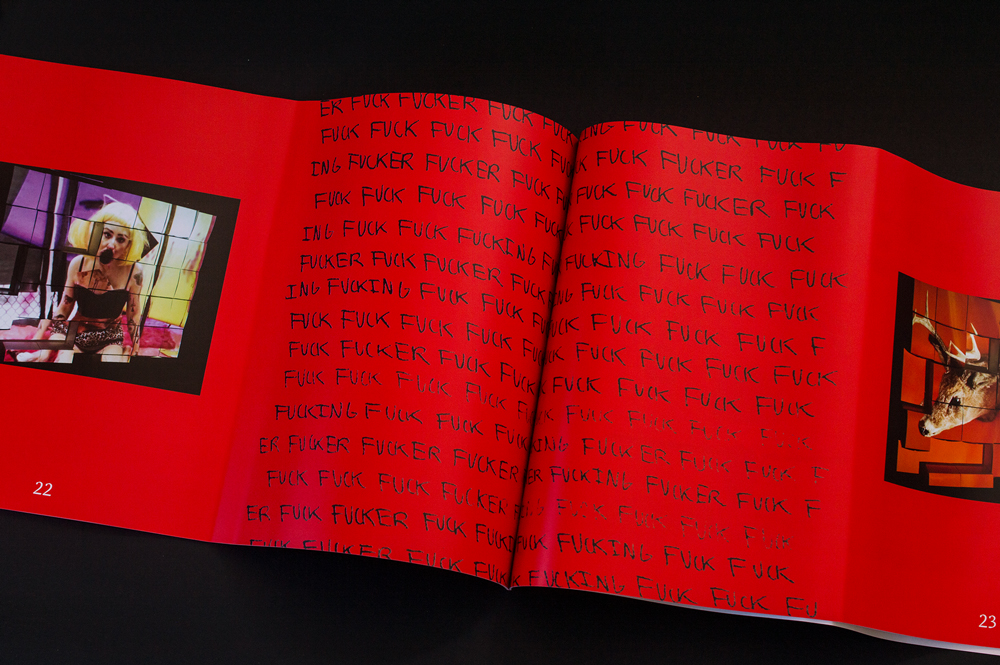 ER FUCK FUCKER FUCK FUCK
FUCK FUCK FUCK FUCK FUCK
ING FUCKER FUCKER FUCK F
FUCK FUCK FUCK FUCK FUCK
ING FUCK FUCK FUCKING F
FUCKER FUCK FUCKER FUCK
ING FUCKING FUCK FUCK FUCK
FUCK FUCK FUCK FUCK FUCK
FUCK FUCKER FUCK FUCK
FUCK FUCK FUCK FUCK F
FUCKING FUCK FUCK FUCK
ER FUCKER FUCKER FUCKER
FUCK FUCK FUCK FUCKER
ER FUCK FUCKER FUCK FUCK
FUCK FUCKER FUCK FUCK
22
ING FUCK FUCK FUCK FU
FUCK FUCKER FUCK F
FUCK FUCK FUCKER FUCK
FUCK FUCK FUCK FUCK
FUCKING FUCK FUCK FUCK
NG FUCK FUCK FUCK FUCK
FUCK FUCK FUCK FUCK F
FUCK FUCK FUCK FUCK
FUCK FUCK FUCK FUCK
FUCK FUCK FUCK FUCK
KING FUCK FUCKER FUCK FUCK F
ER FUCKING FUCKER FUCK F
NG FUCK FUCK FUCK FUCK
FUCK FUCKING FUCK FUCK
FUCKING FUCK FUCK FU
23